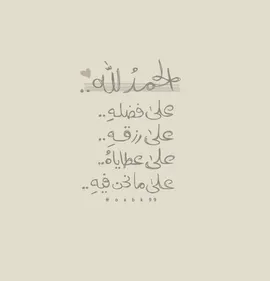 الحمدُ لله ..
على فضلهِ ..
على رزقهِ ..
على عطاياهُ ..
على ما نحن فيهِ ..